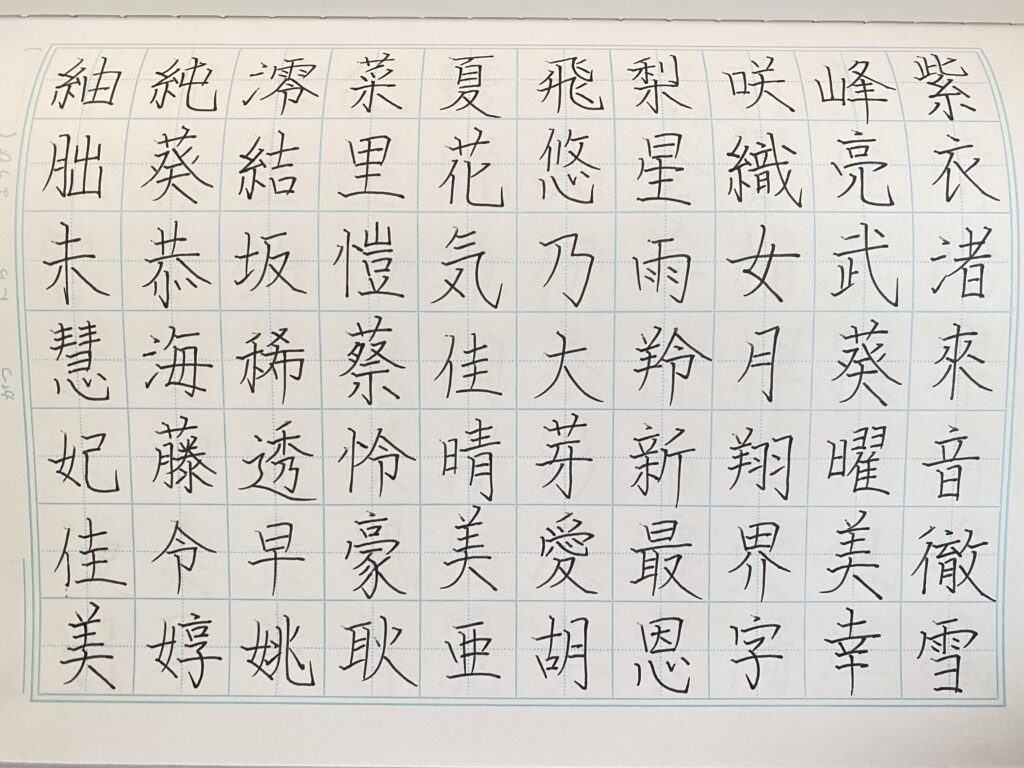 紫衣渚來音徹雪
峰亮武葵曜美幸
咲織女月翔界字
梨星雨羚新最恩
飛悠乃大芽愛胡
夏花気佳晴美亜
菜里愷蔡怜豪耿
澪結坂稀透早姚
純葵恭海藤令婷
紬朏未慧妃佳美
がつ にち (ようび)